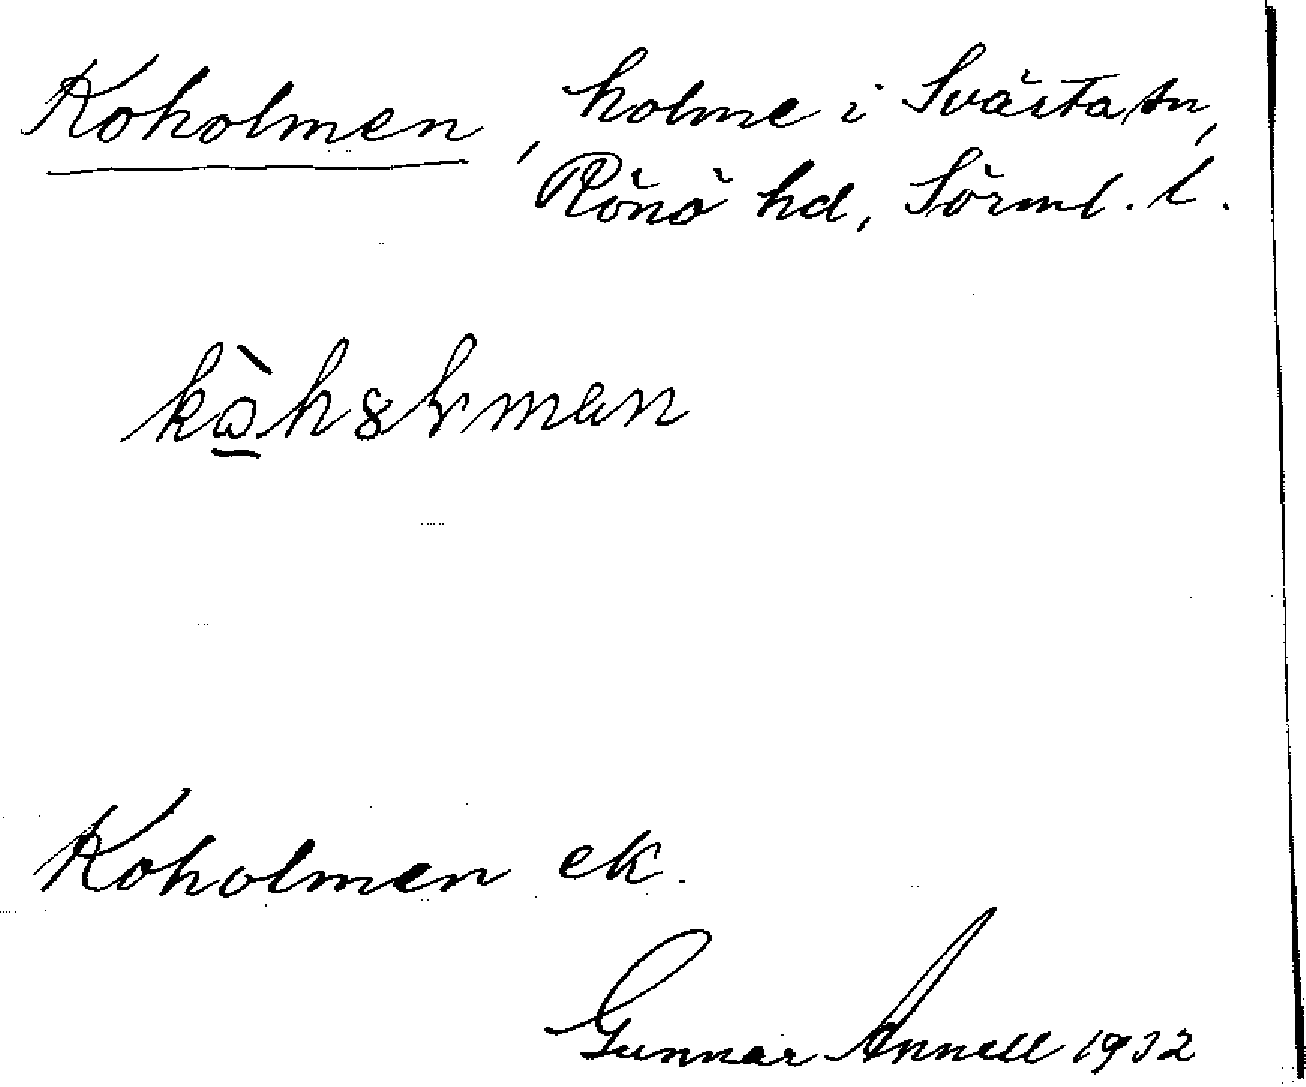 Koholmen, holme i Svärta sn,
Rönö hd, Sörml. l.
Koholmen ek.
Gunnar Annell 1932